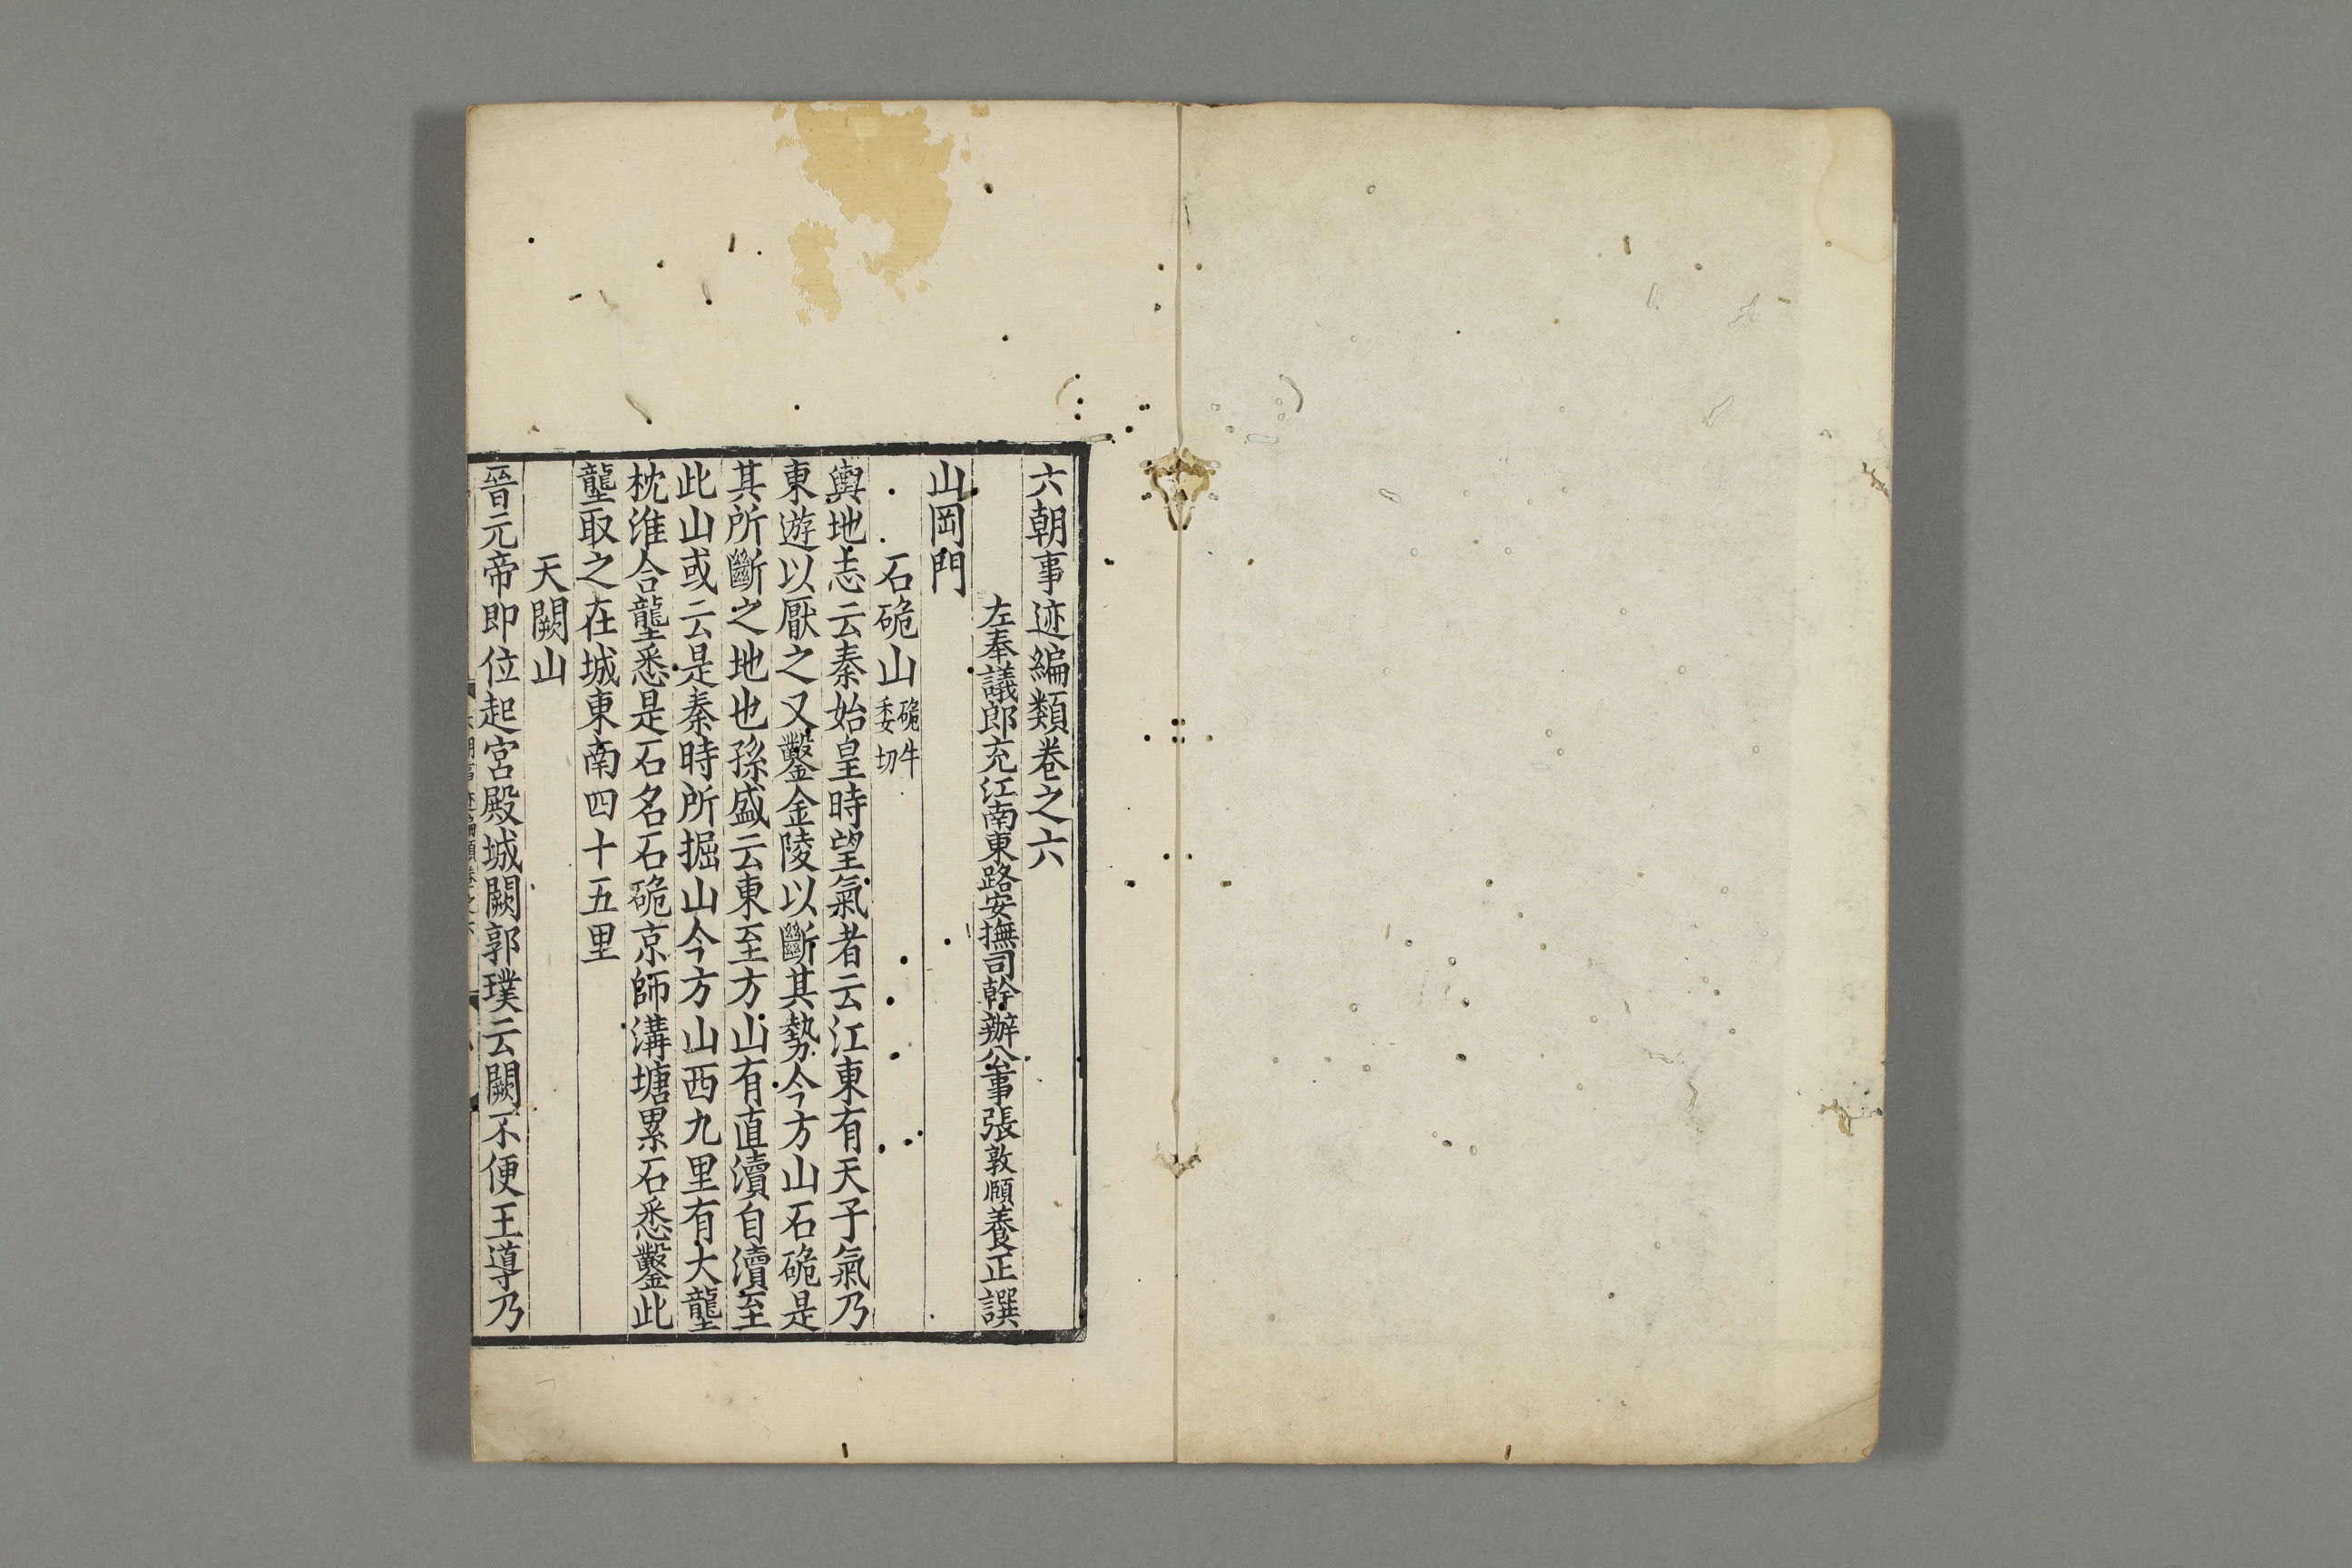 六朝事迹編類卷之六
左奉議郎充江南東路安撫司幹辦公事張敦頤養正譔
山岡門
石硊山硊牛委切
輿地志云秦始皇時望氣者云江東有天子氣乃
東遊以厭之又鑿金陵以斷其勢今方山石硊是
其所斷之地也孫盛云東至方山有直瀆自瀆至
此山或云是秦時所掘山今方山西九里有大壟
枕淮合壟悉是石名石硊京師溝塘累石悉鑿此
壟取之在城東南四十五里
天闕山
晉元帝即位起宮殿城闕郭璞云闕不便王導乃